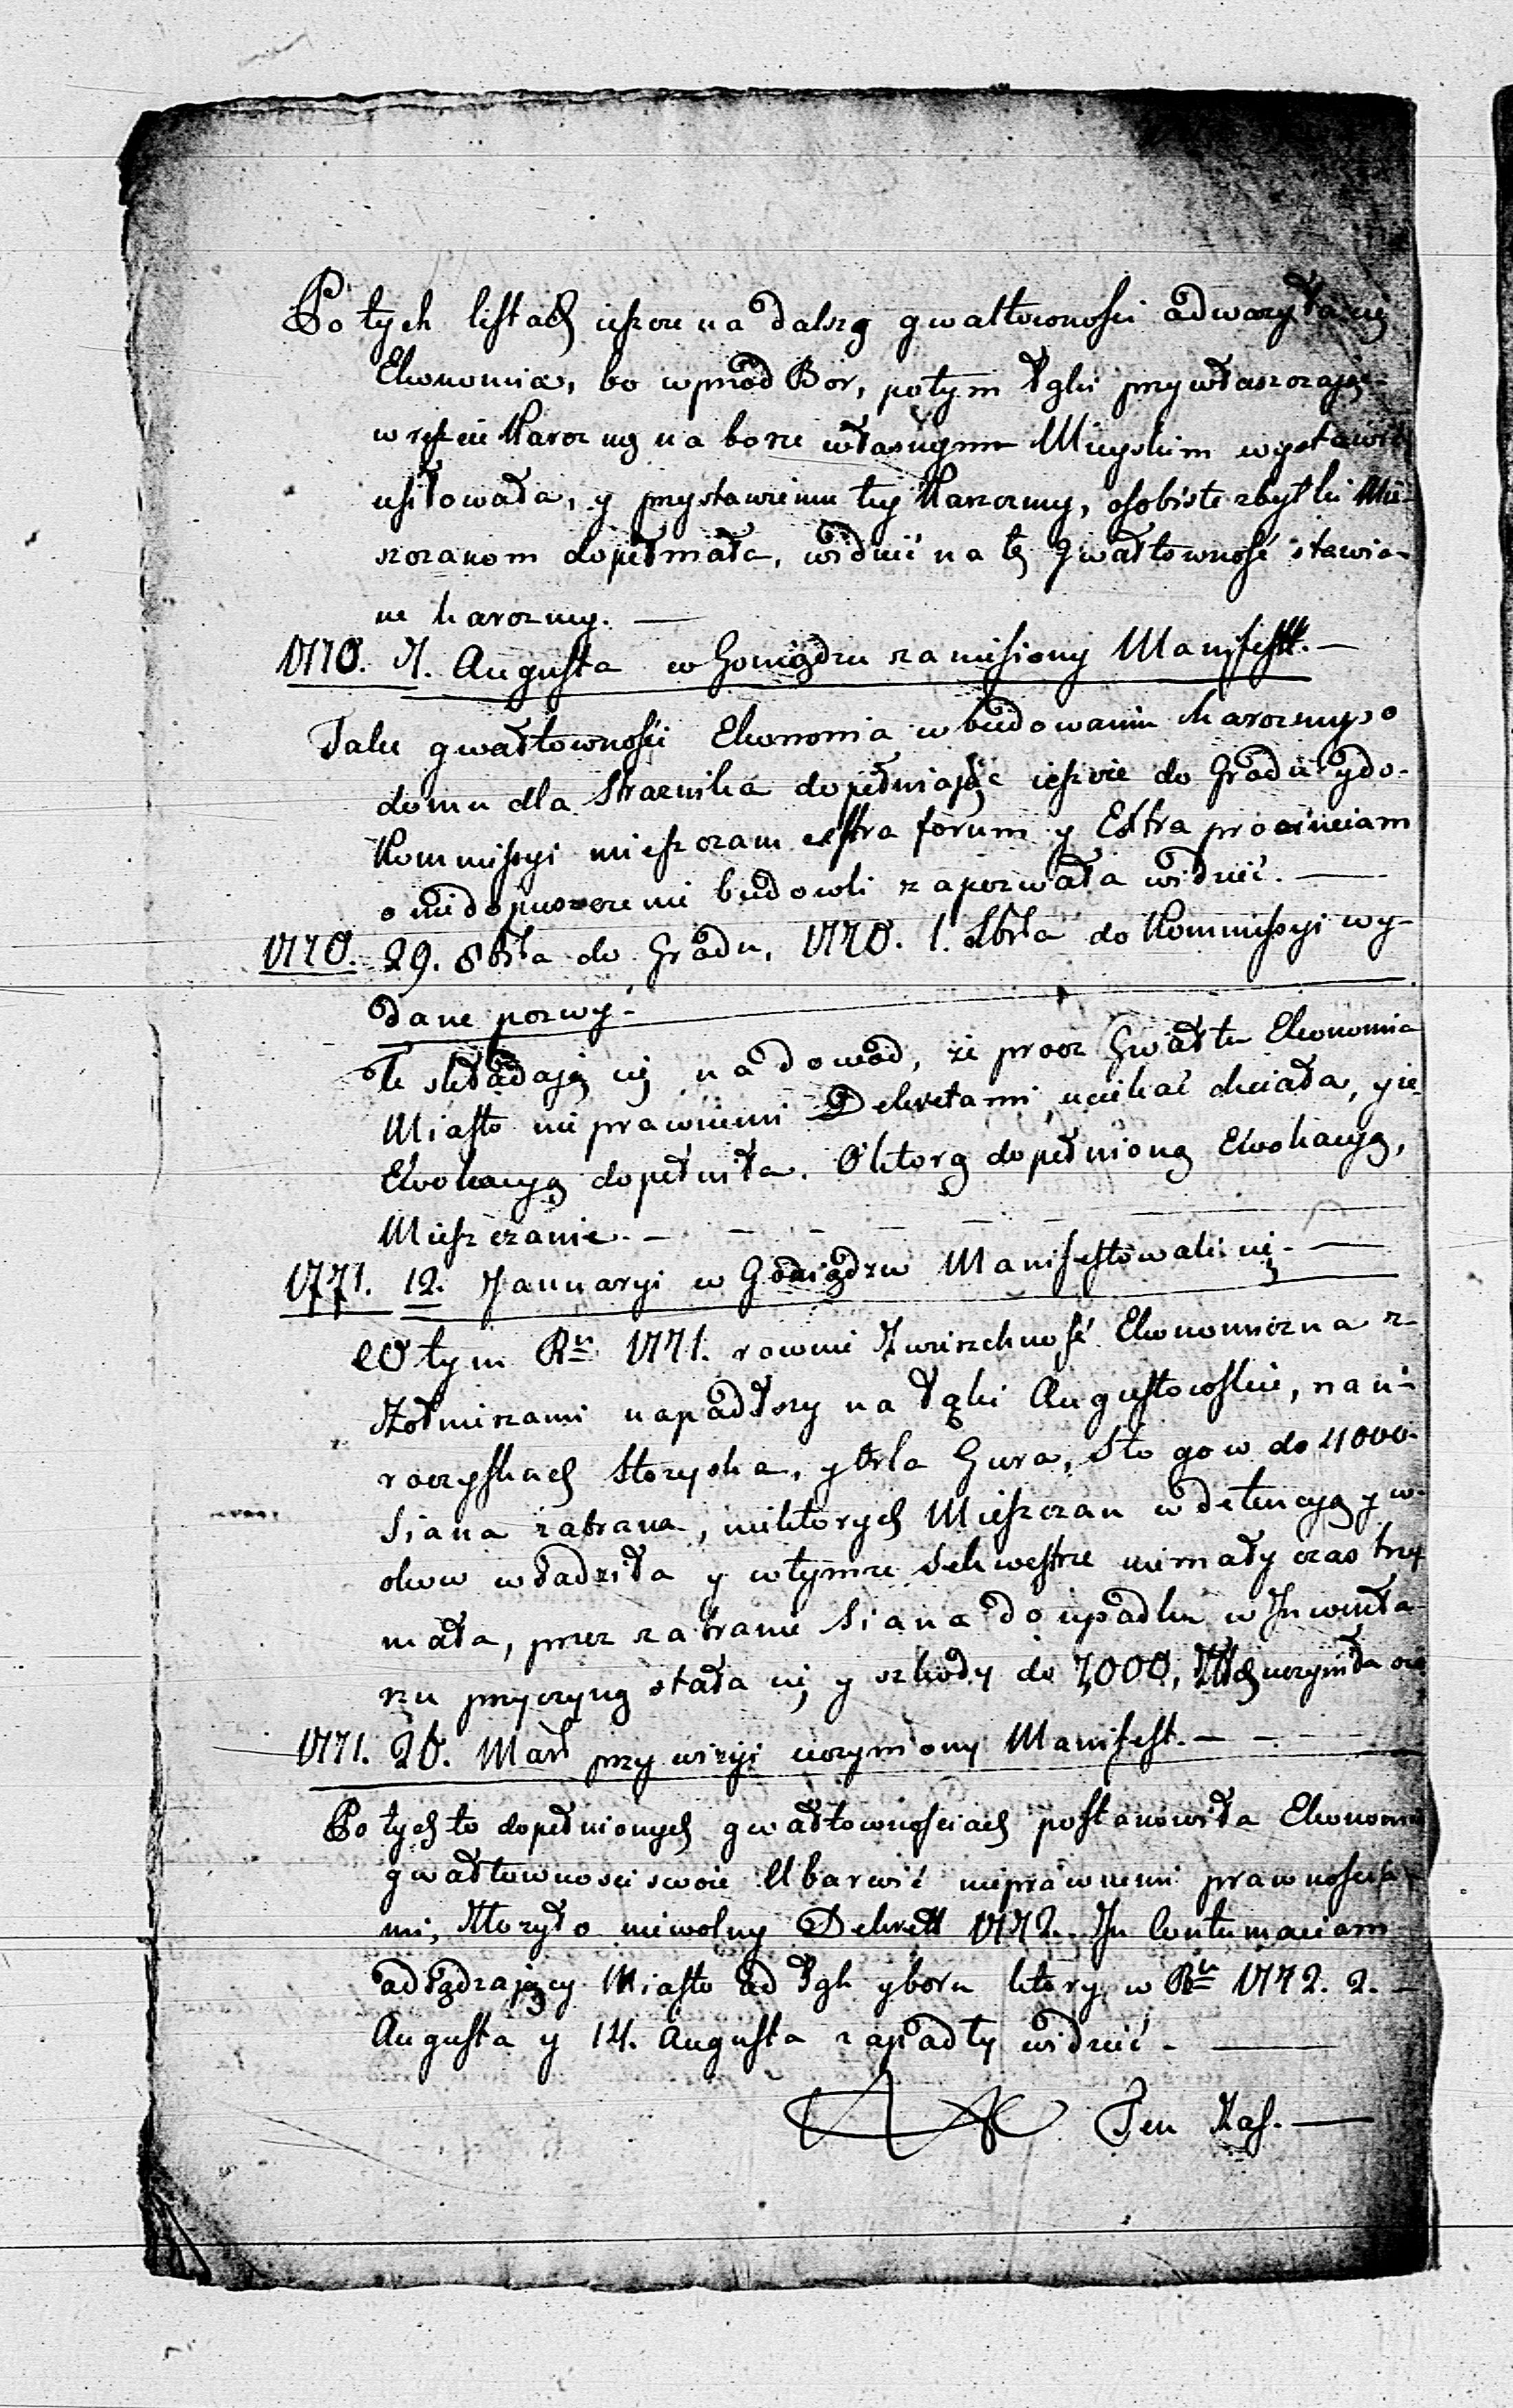 Po tych listach ieszcze na dalszą gwałtowności odważyła się
Ekonomia, bo wprzod Bor, potym Łąki przywłaszczając
wreszcie Karczmę na borze własnym Mieyskim wystawić
usiłowała, y przystawieniu tey Karczmy, osobiste zbytki Mie-
szczanom dopełniała, widzieć na tę gwałtowność stawia-
ne karczmy. —
1770. 7. Augusta w Goniądzu zaniesiony Manifest. —
Takie gwałtowności Ekonomia w budowaniu karczmy, o
domu dla Strażnika dopełniając ieszcze do Gradu y do
Kommissyi mieszczan extra forum y Extra prociniciam
o niedopuszczenie budowli zapozwała widzieć. —
1770. 29. 8bra do Gradu, 1770. 1. Xbra do Kommissyi wy-
dane pozwy. —
Te składają się na dowod, że procz Gwałtu Ekonomia
Miasto nieprawnemi Dekretami uciskać chciała, y ie
Ewokacyą dopełniła. O ktorą dopełnioną Ewokacyą,
Mieszczanie. — — — — —
1771. 12. Januaryi w Goniądzu Manifestowali się. —
W tym Ru 1771. rownie Zwierzchność Ekonomiczna z
Żołnierzami napadłszy na Łąki Augustowskie, na u-
roczyskach Storzyska, y Orla Gura, Stogow do 4000
Siana zabrawa, niektorych Mieszczan w detencyą y w
okow wsadziła y w tymze Sekwestrze niemały czas trzy-
mała, przez zabranie Siana do upadku w Inwenta-
rzu przyczyną stała się y szkody do 7000, Złłch uczyniła
1771. 20. Mar przy wizyi uczyniony Manifest. — —
Po tych to dopełnionych gwałtownościach postanowiła Ekonomi
gwałtownosci swoie Ubarwić nieprawnemi prawnościa-
mi, Ktoryto niewolny Dekrett 1772. In Contumaciam
odsądzaiący Miasto od Łąk y boru ktory w Ru 1772. 2. —
Augusta y 14. Augusta zapadły widzieć. —
Ten Zaś. —